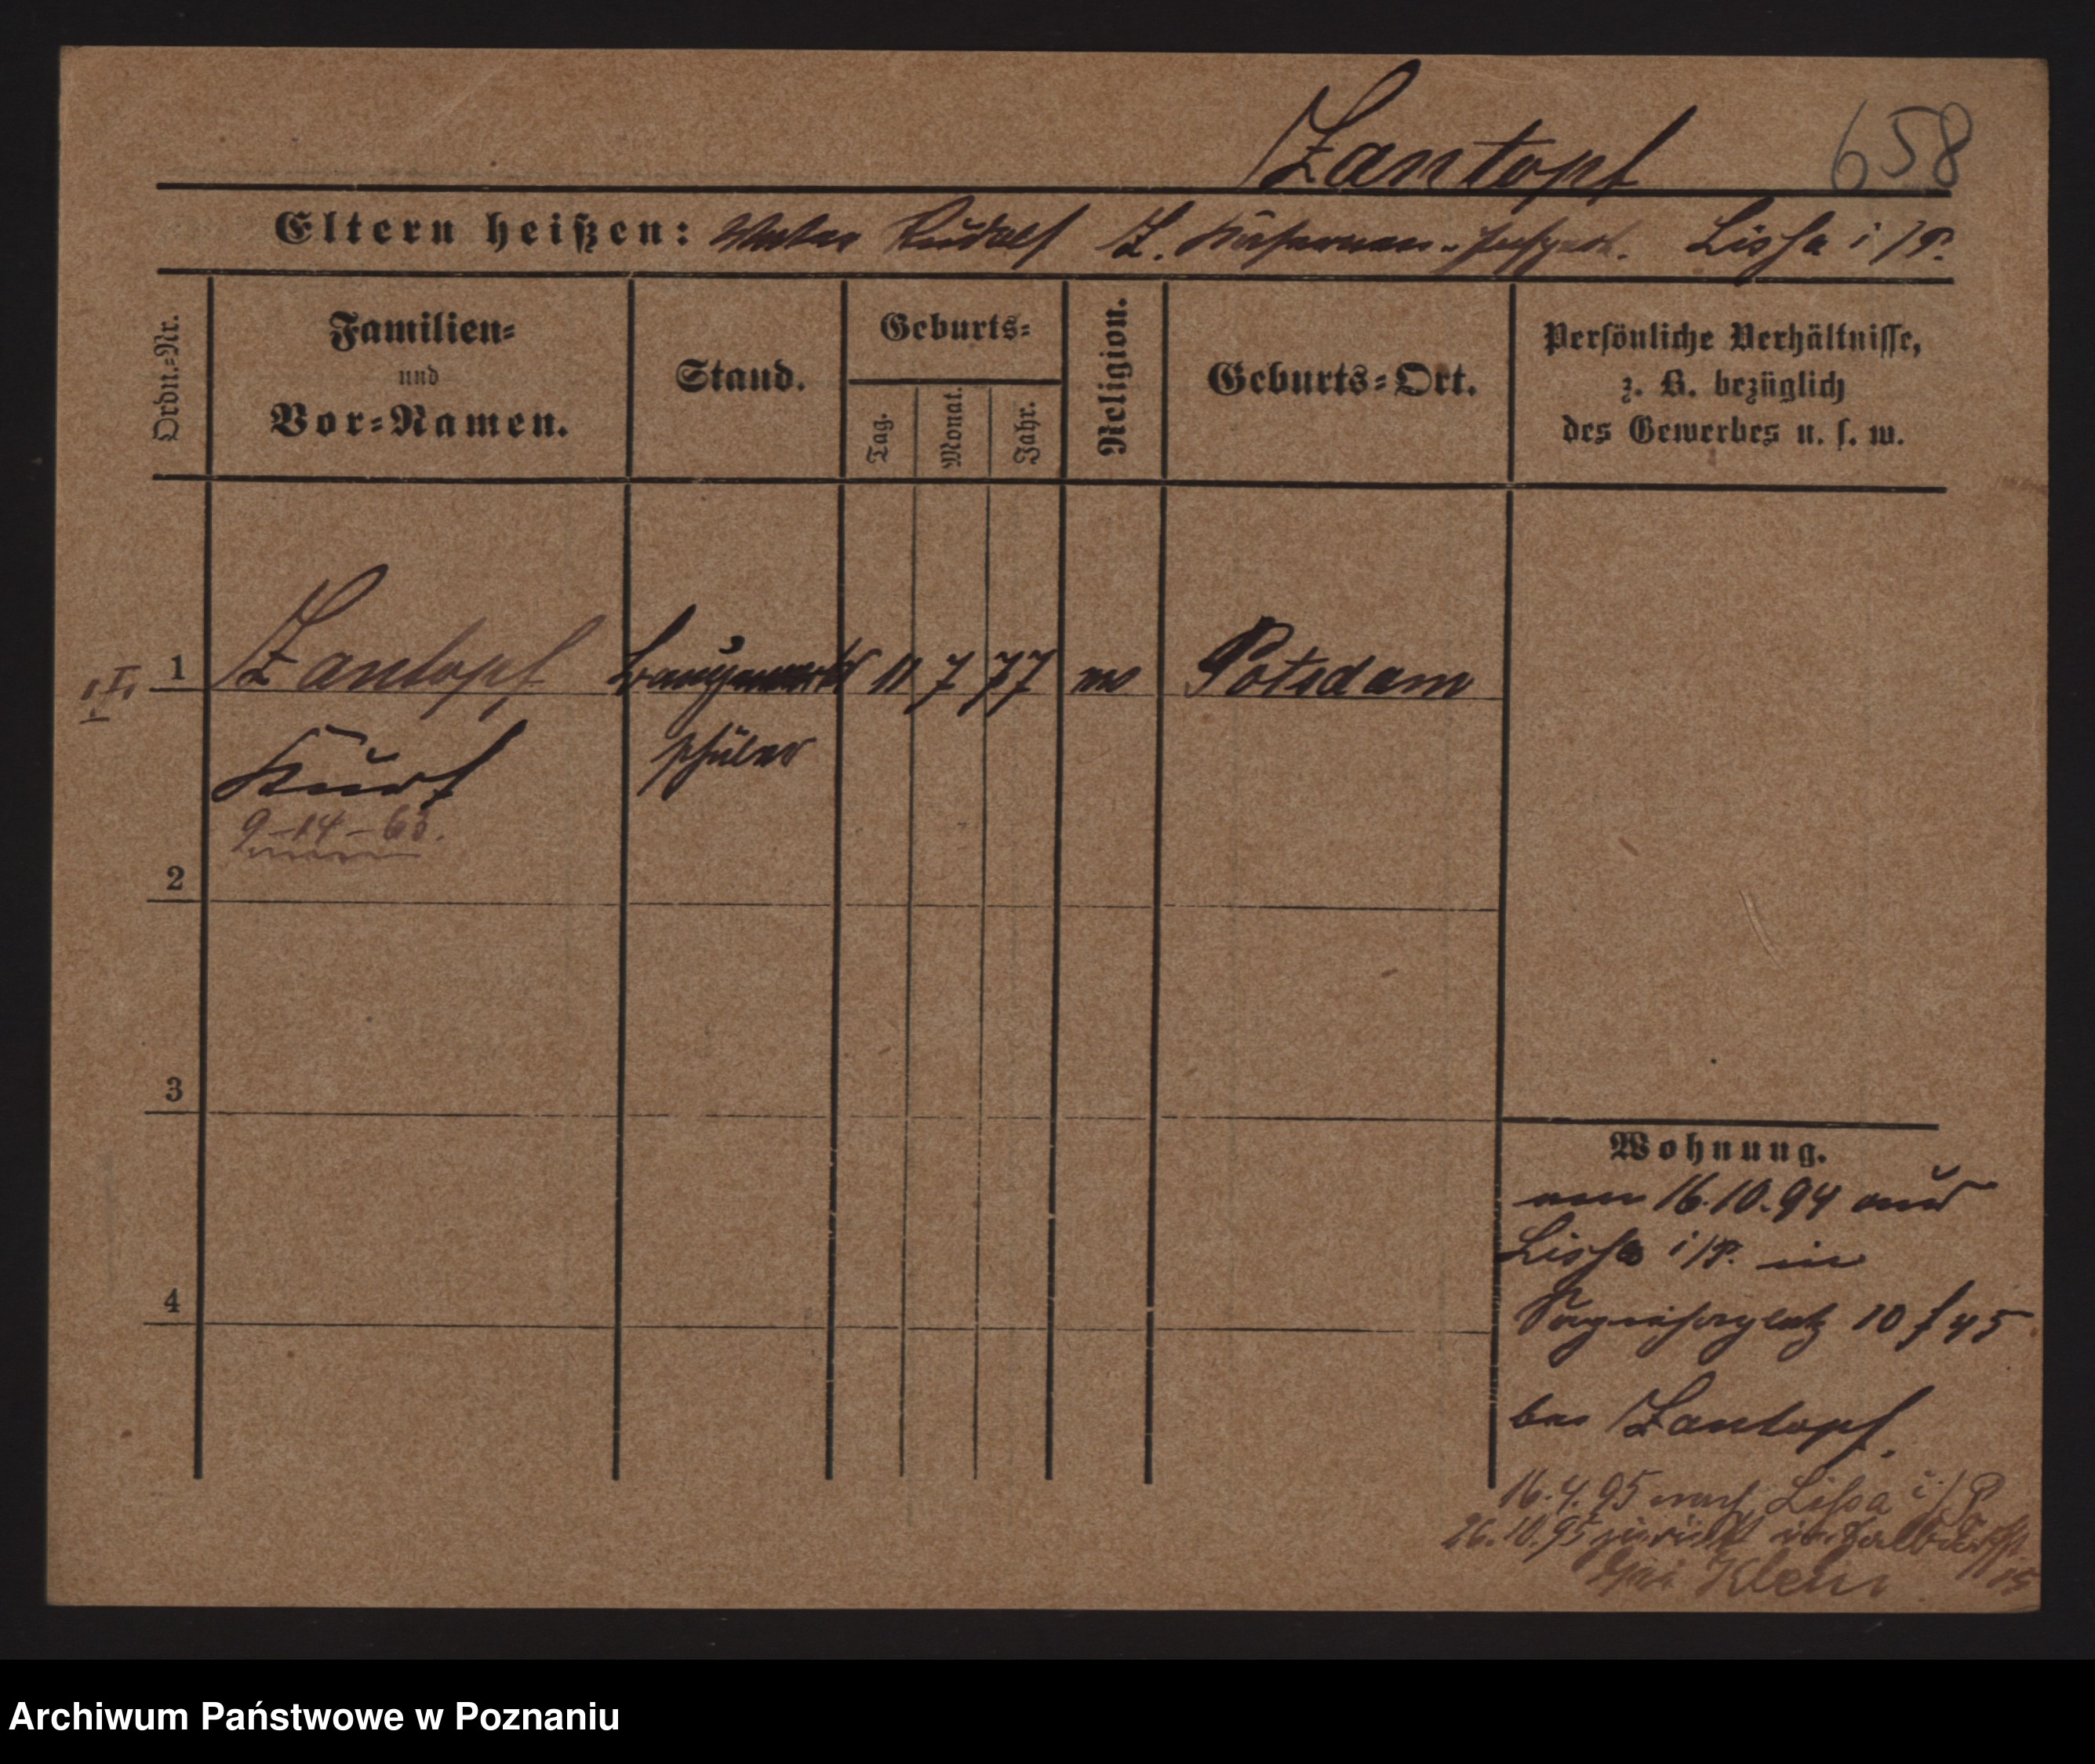 Zantopf 658
Eltern heißen: Vater Rudolf Z. Lissa i/P.
Ordn.=Nr.
Familien=
und
Vor=Namen.
Stand.
Geburts=
Tag.
Monat.
Jahr.
Religion.
Geburts=Ort.
Persönliche Verhältnisse,
z. B. bezüglich
des Gewerbes u. s. w.
1 Zantopf Baugewerk 11 7 77 ev Potsdam
Kurt schüler
9-14-
2
3
4
Wohnung.
von 16.10.94 aus
Lissa i/P. in
10
bei Zantopf.
16.4.95 nach Lissa i./P
26.10.95 zurück
bei Klein 15
Archiwum Państwowe w Poznaniu